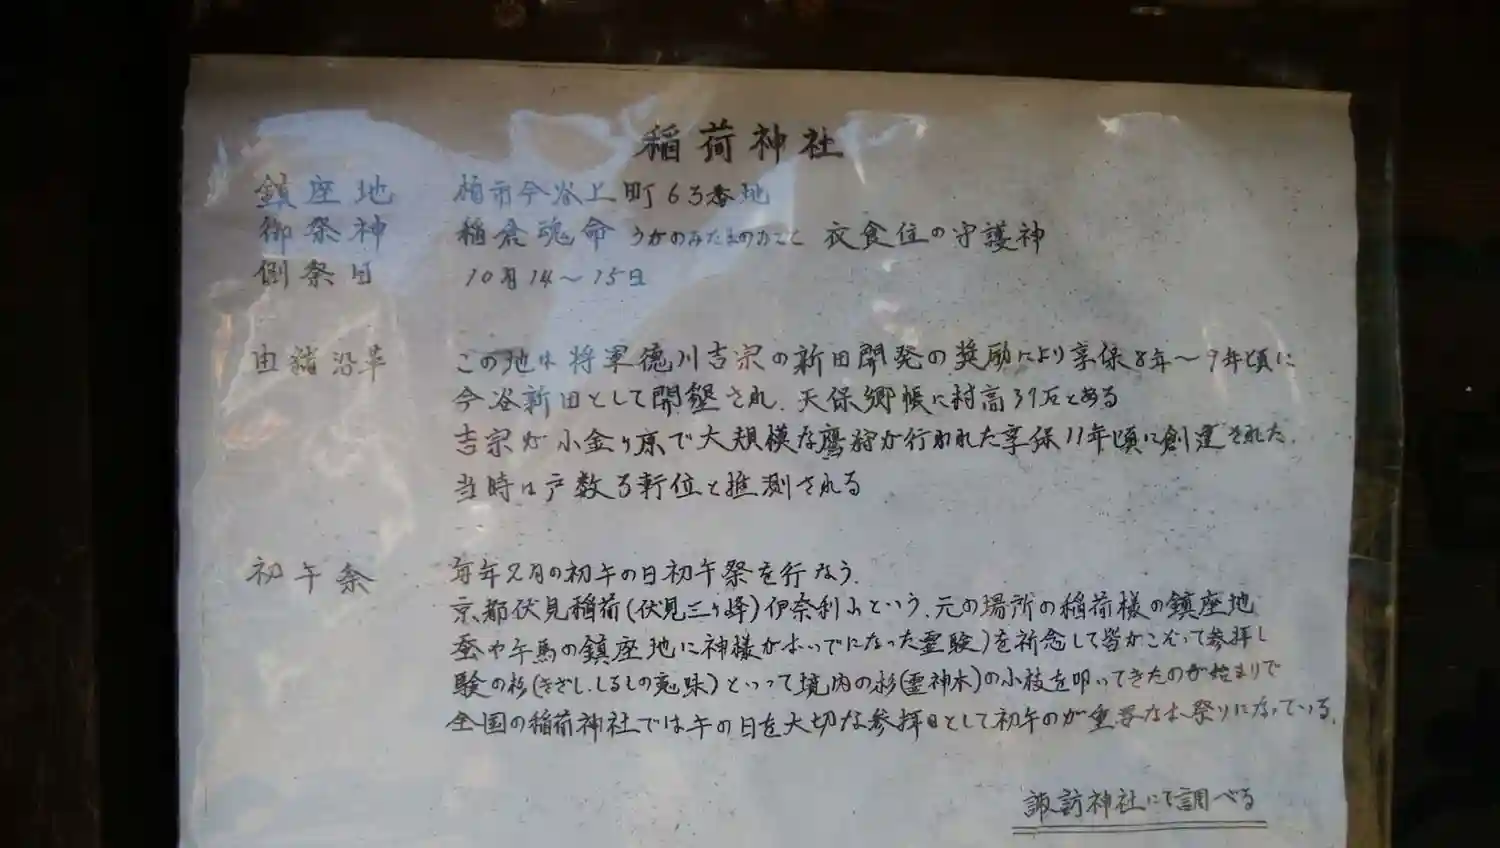 稲荷神社
鎮座地 柏市今谷上町63番地
御祭神 稲倉魂命 うかのみたまのみこと 衣食住の守護神
例祭日 10月14〜15日
由緒沿革 この地は将軍徳川吉宗の新田開発の奨励により享保8年〜9年頃に
今谷新田として開墾され、天保郷帳に村高39石とある
吉宗が小金ヶ原で大規模な鷹狩が行われた享保11年頃に創建された。
当時は戸数る軒位と推測される
初午祭 毎年2月の初午の日初午祭を行なう。
京都伏見稲荷(伏見三ヶ峰)伊奈利山という、元の場所の稲荷様の鎮座地
午馬の鎮座地に神様がおいでになった霊験)を祈念して皆がこぞって参拝し
験の杉(きざし、しるしの意味)といって境内の杉(霊神木)の小枝を叩いてきたのが始まりで
全国の稲荷神社では午の日を大切な参拝日として初午のが重要なお祭りになっている。
諏訪神社にて調べる